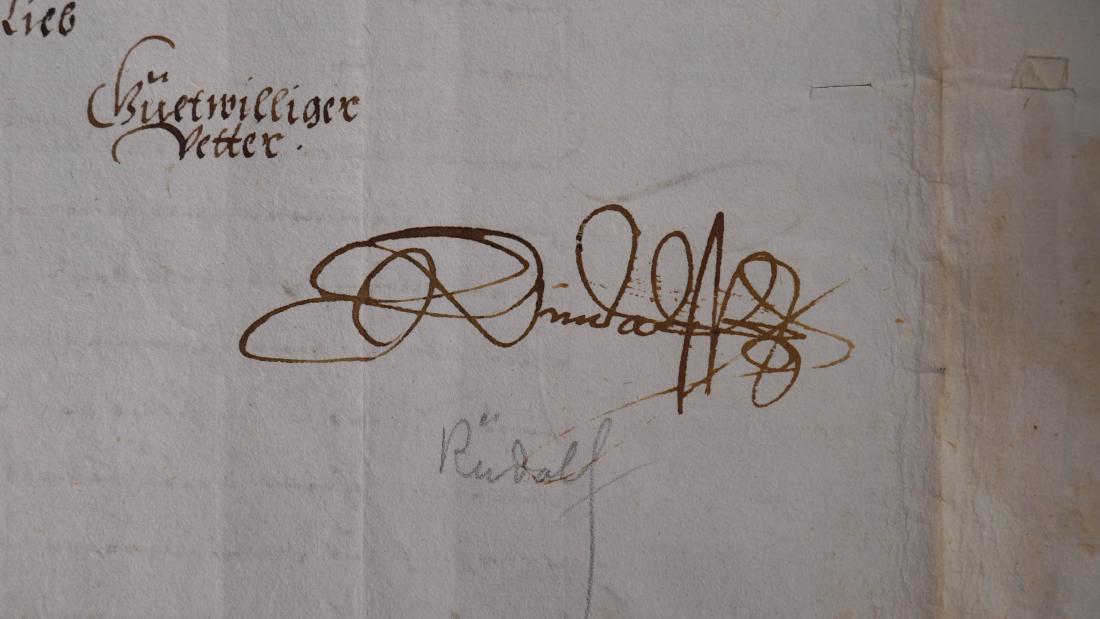 Lieb
Güetwilliger
Vetter.
Rudolff
Rüdolf